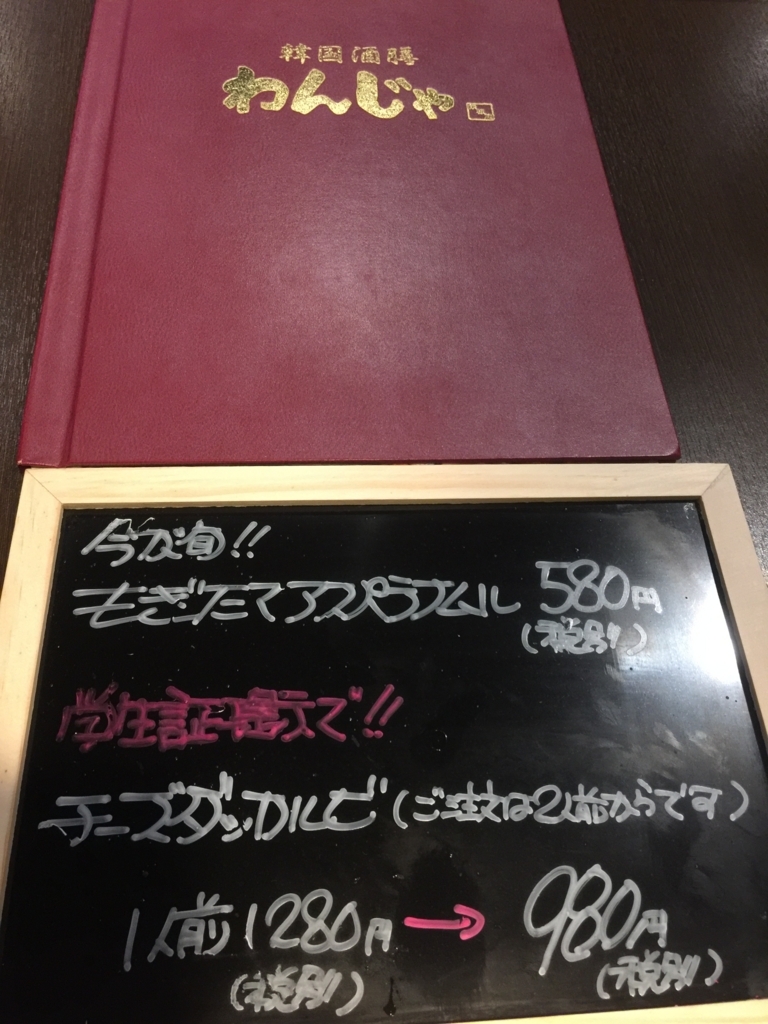 韓国酒膳
わんじゃ
今が旬!!
もぎたてアスパラナムル 580円
(税別)
学生証提示で!!
チーズダッカルビ(ご注文は2人前からです)
1人前 1280円 → 980円
(税別) (税別)